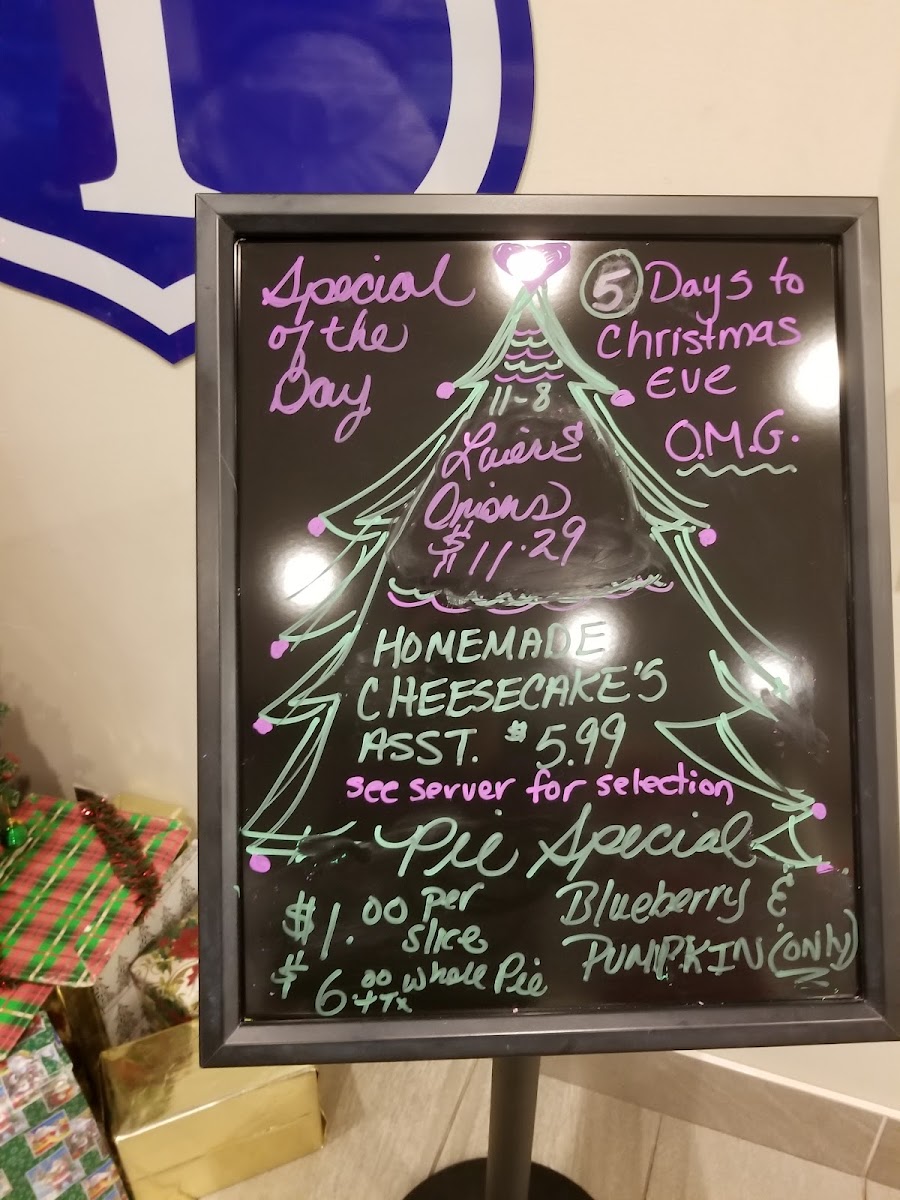 Special
of the
Day
5 Days to
Christmas
Eve
O.M.G.
11-8
Liver &
Onions
$11.29
HOMEMADE
CHEESECAKE'S
ASST. $5.99
see server for selection
Pie Special
$1.00 per
slice
$6.00 whole Pie
+Tx
Blueberry &
PUMPKIN (only)